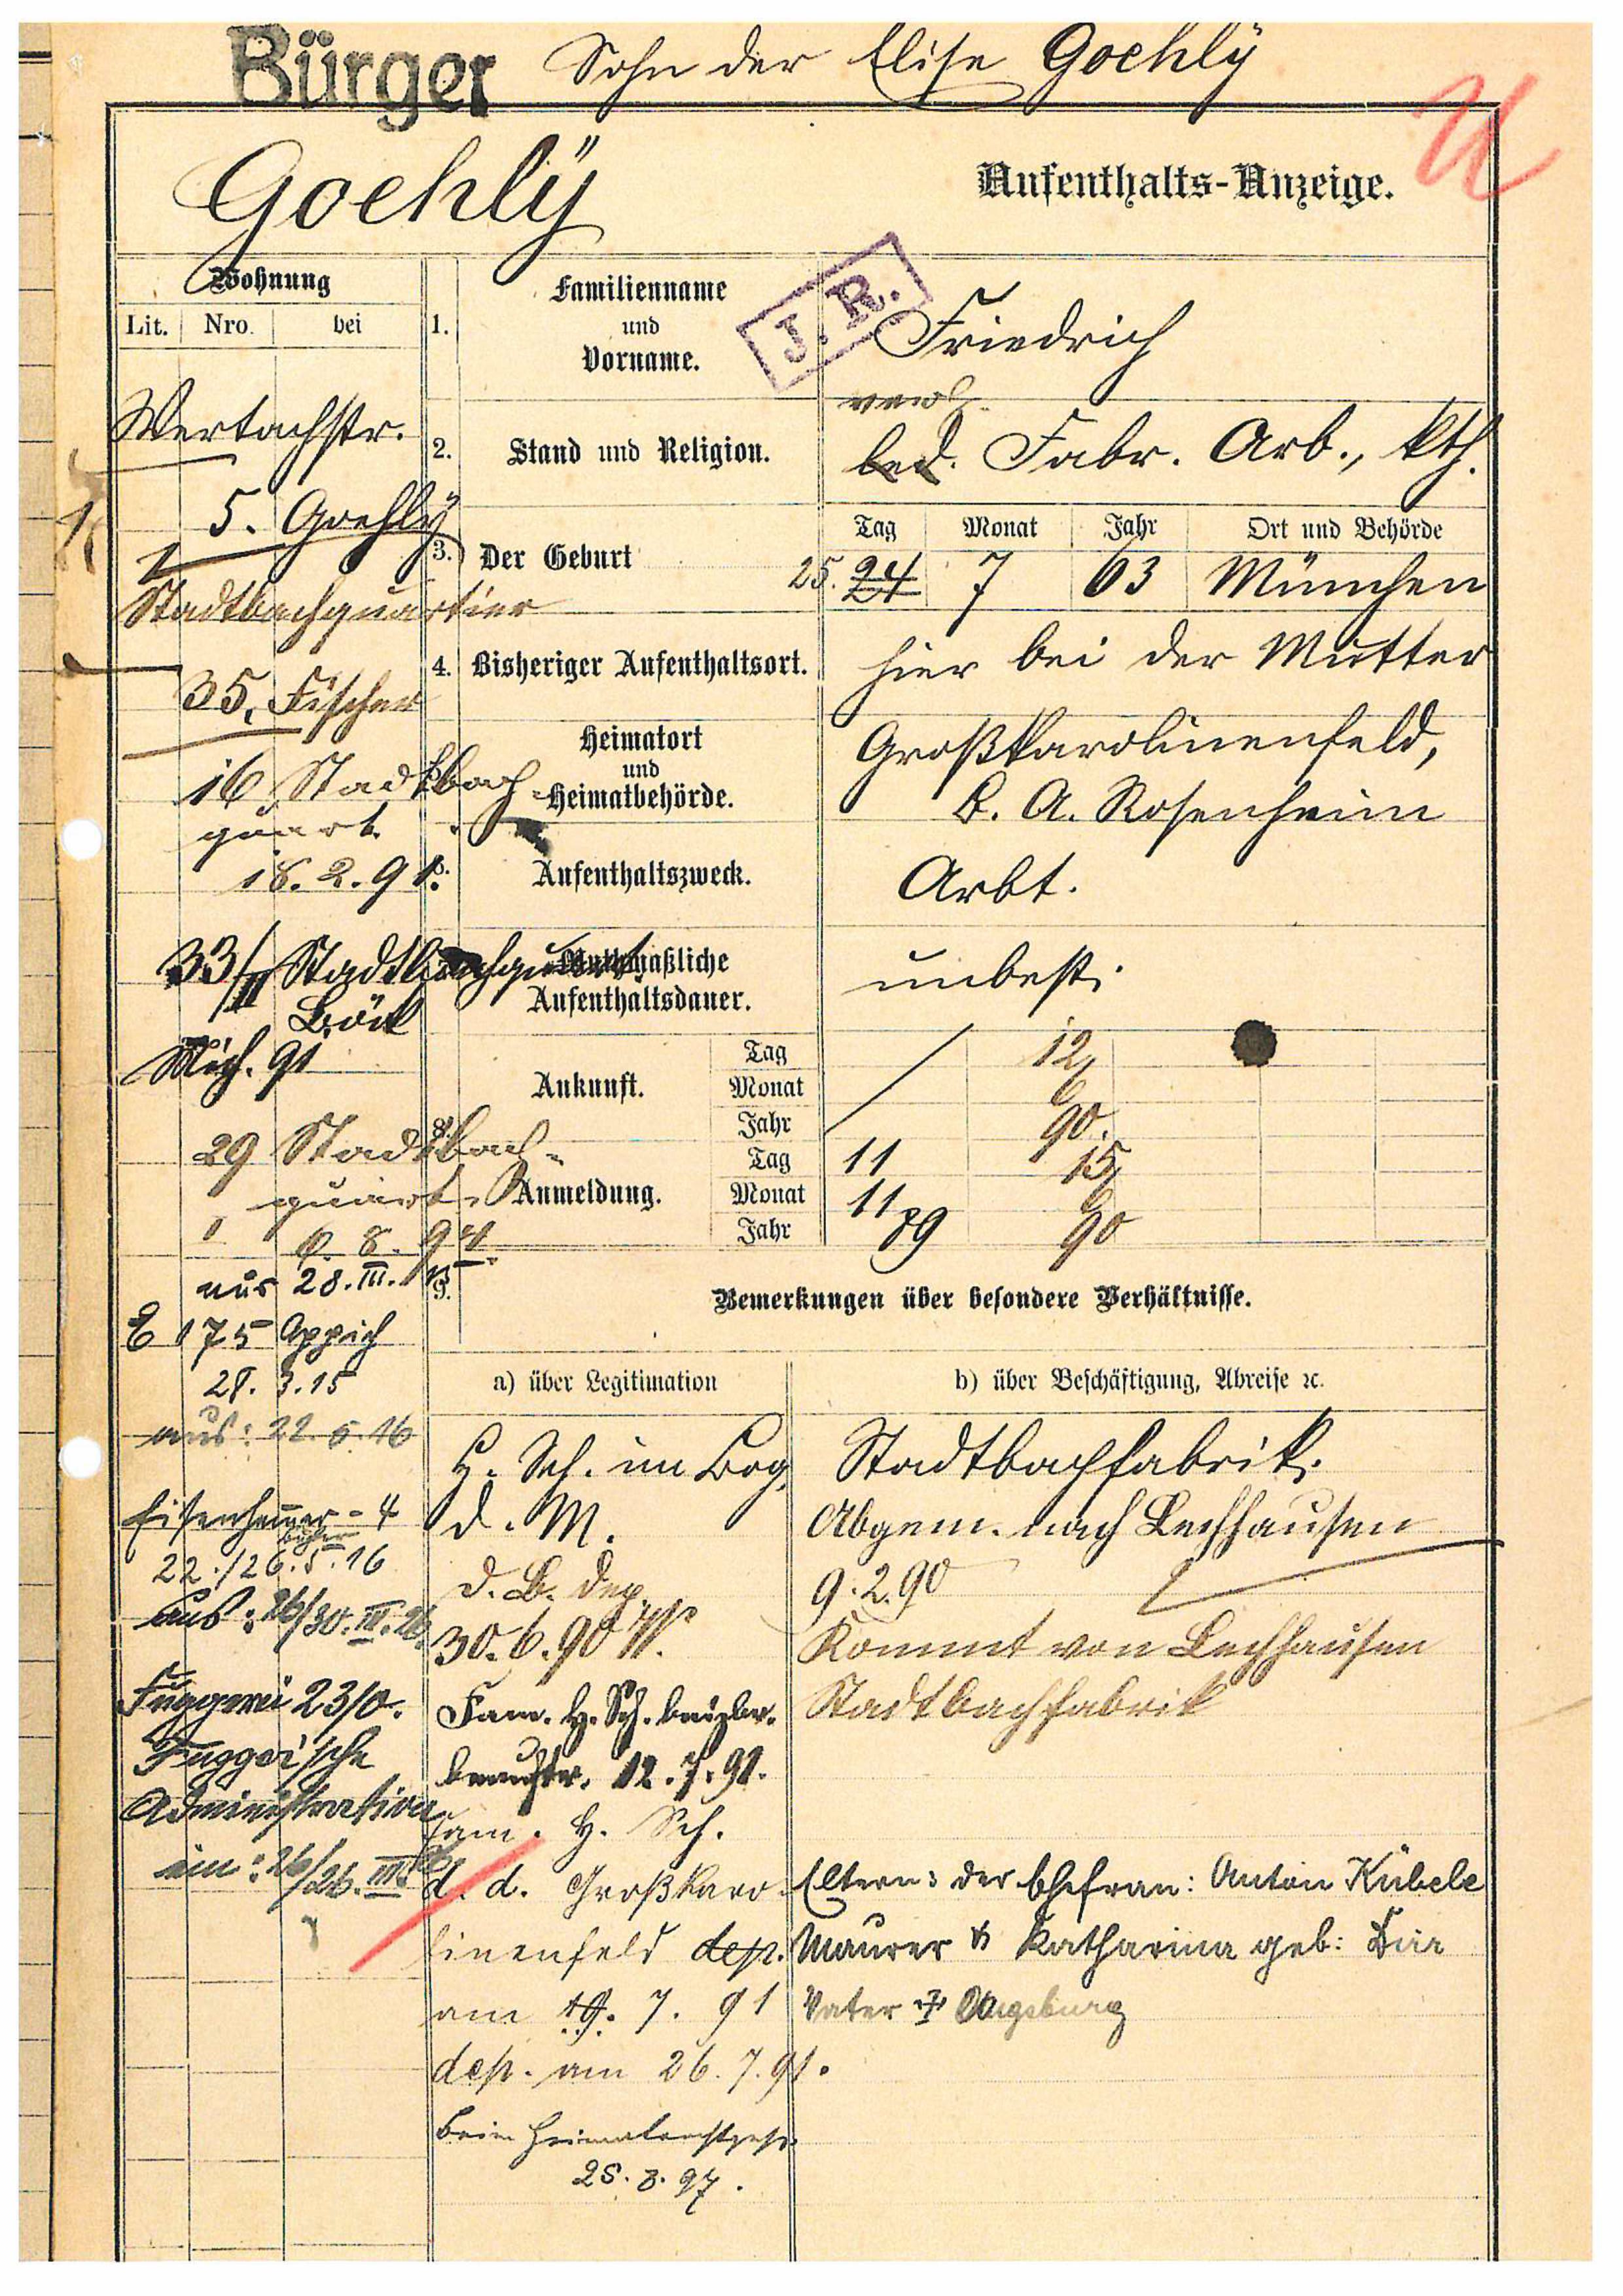 Bürger Sohn der Elise Goehlÿ
Goehlÿ
Aufenthalts-Anzeige.
Wohnung
Lit. Nro. bei
Wertachstr.
5. Goehlÿ
Stadtbachquartier
35. Fischer
16 Stadtbach-
quart.
18. 2. 91.
33/II Stadtbachquart.
Böck
Mich. 91
29 Stadtbach-
quart.
6. 8. 94
aus 28. III. 15
E 175 Appich
28. 3. 15
aus: 22. 5. 16
Eisenhammer - 4
22./26. 5. 16
aus: 26/30. III. 26.
Fuggerei 23/0.
Fugger'sche
Administration
ein: 26/26. III.
1. Familienname
und
Vorname.
J. R.
Friedrich
2. Stand und Religion.
verh.
led. Fabr. Arb., kth.
3. Der Geburt
Tag Monat Jahr Ort und Behörde
25. 24 7 63 München
4. Bisheriger Aufenthaltsort.
hier bei der Mutter
Heimatort
und
Heimatbehörde.
Großkarolinenfeld,
B. A. Rosenheim
Aufenthaltszweck.
Arbt.
Muthmaßliche
Aufenthaltsdauer.
unbest.
8.
Ankunft.
Tag / 12
Monat 6
Jahr 90.
Anmeldung.
Tag 11 15
Monat 11 6
Jahr 89 90
9. Bemerkungen über besondere Verhältnisse.
a) über Legitimation
H. Sch. im Bog.
d. M.
d. B. dep.
30. 6. 90 W.
Fam. H. Sch.
12. 7. 91.
Fam. H. Sch.
d. d. Großkaro-
linenfeld dep.
am 19. 7. 91
dep. am 26. 7. 91.
beim
25. 8. 97.
b) über Beschäftigung, Abreise ꝛc.
Stadtbachfabrik.
Abgem. nach Lechhausen
9. 2. 90
Kommt von Lechhausen
Stadtbachfabrik
Eltern: der Ehefrau: Anton Kübele
Maurer & Katharina geb: Bär
Vater † Augsburg